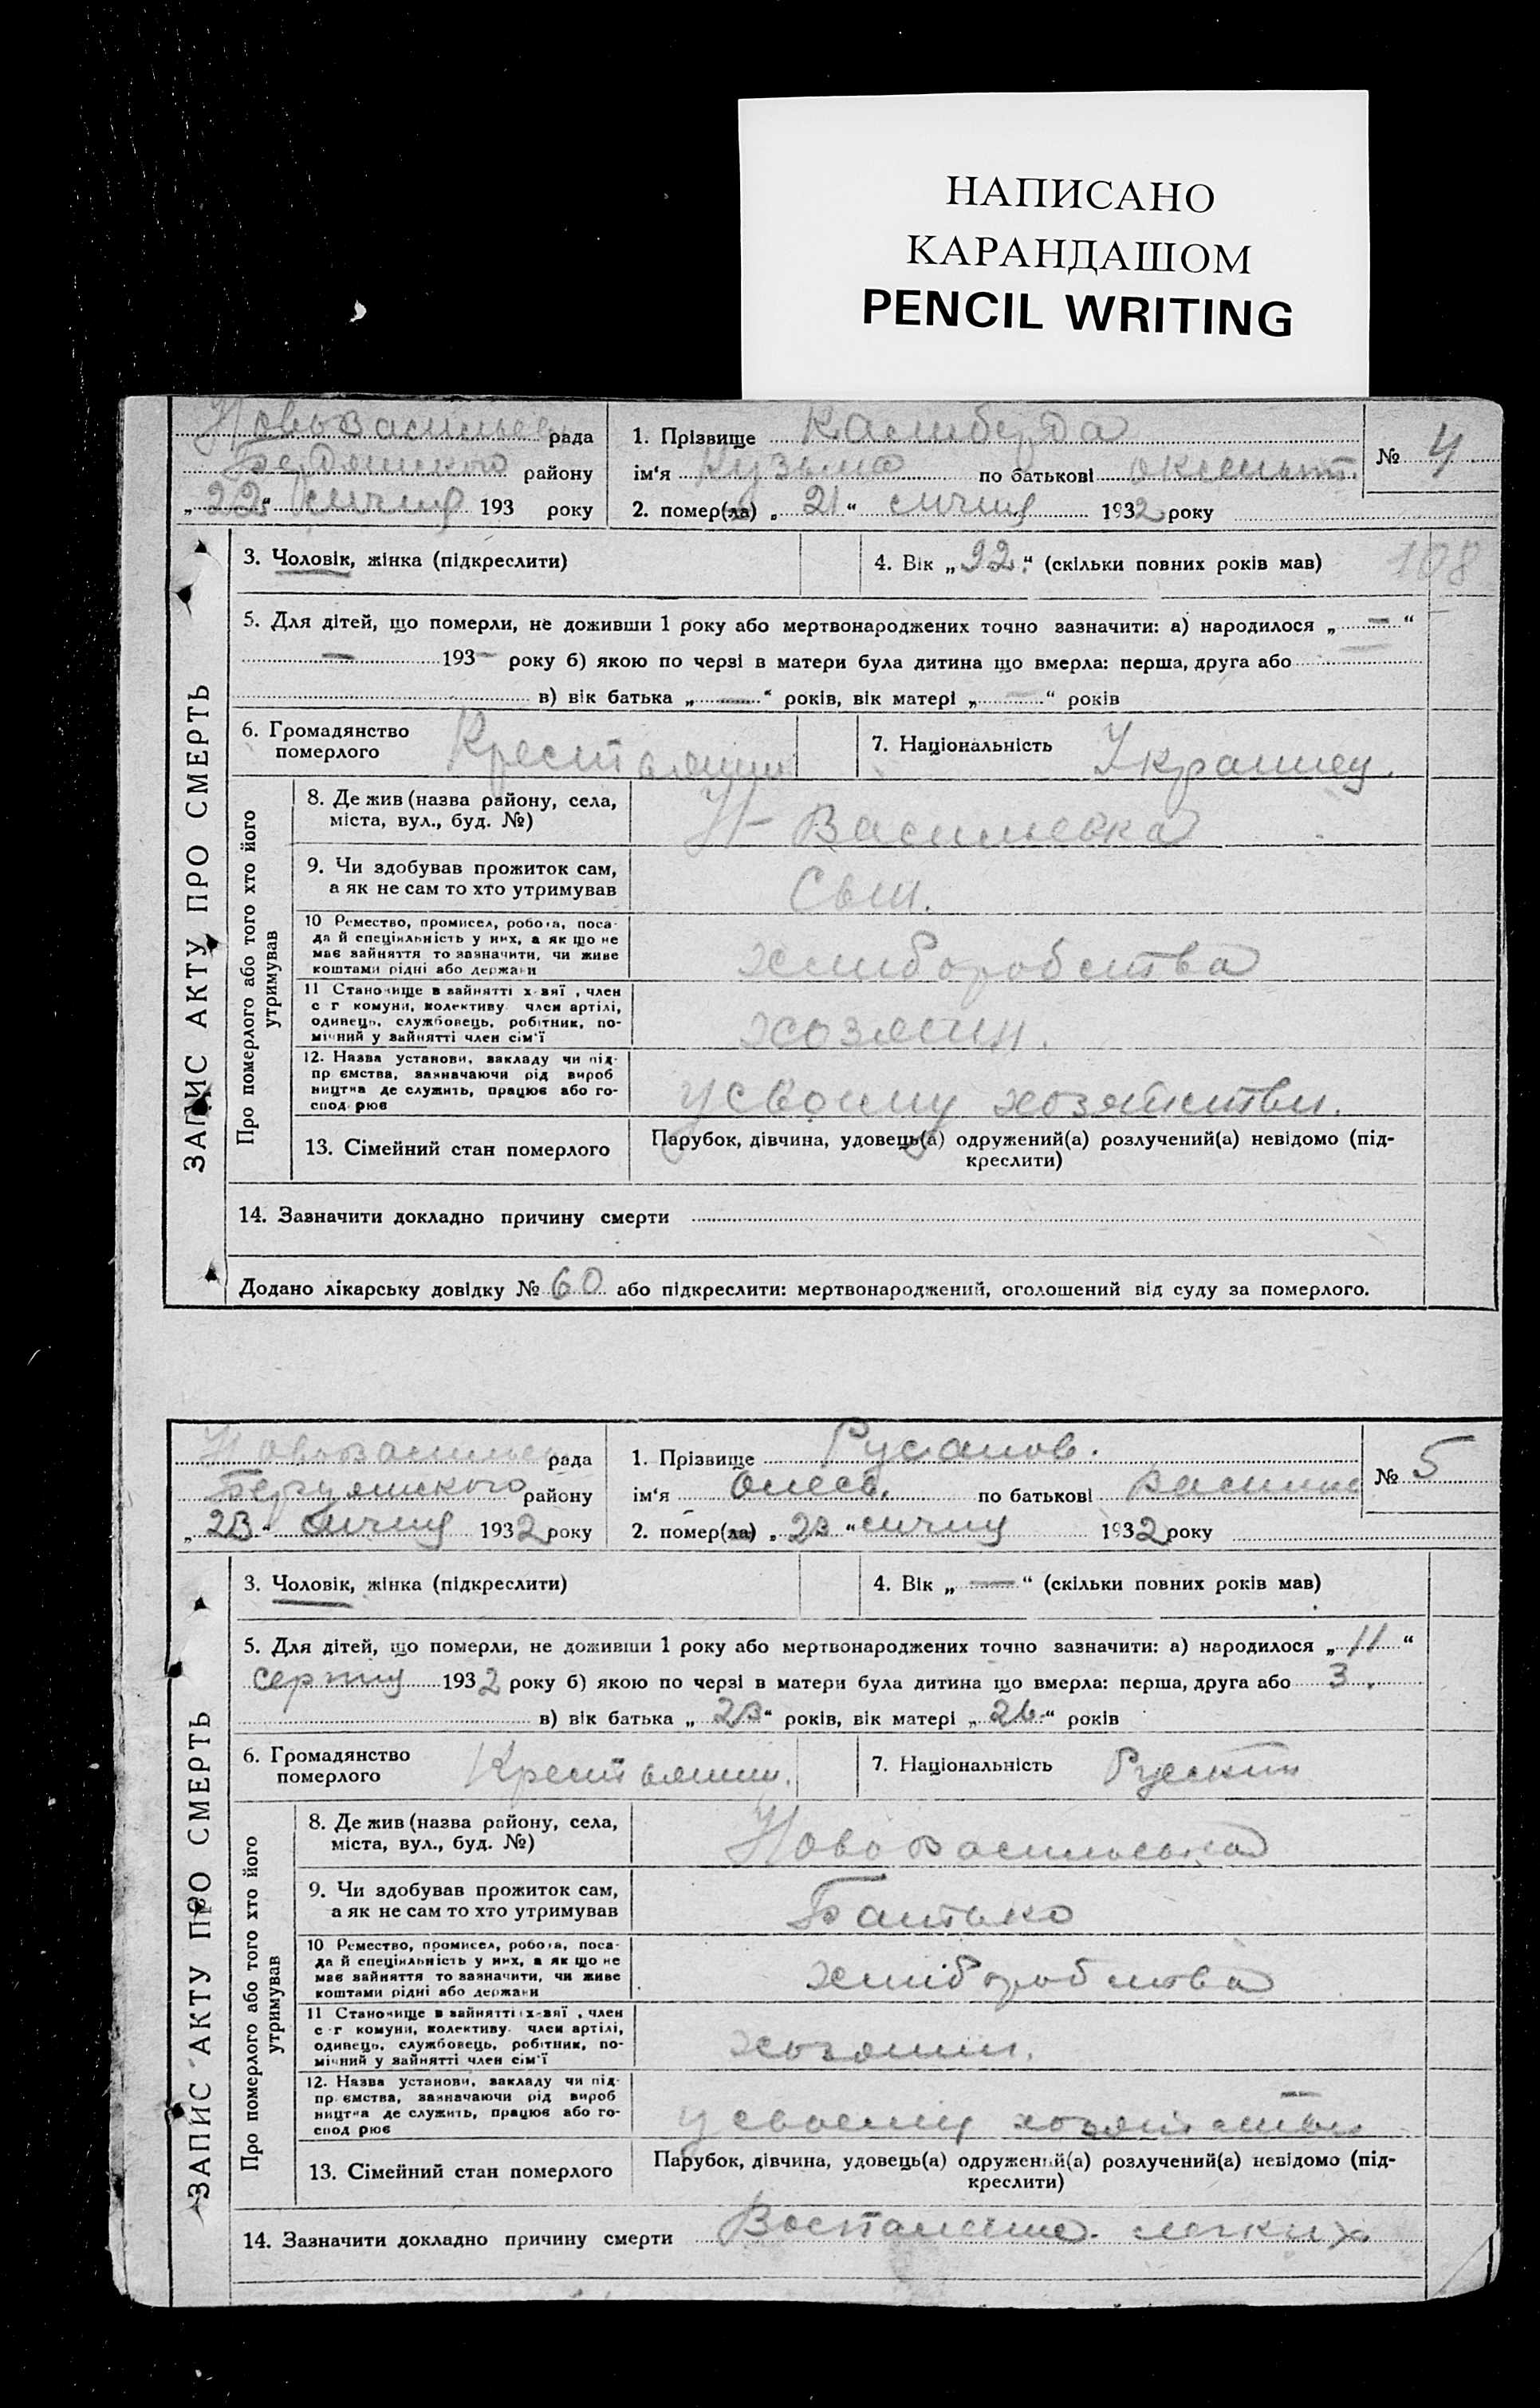 НАПИСАНО
КАРАНДАШОМ
PENCIL WRITING
Нововасильев рада
Бердянского району
„22“ січня 193 року
1. Прізвище Калиберда
ім‘я Кузьма по батькові
2. помер(ла) „21“ січня 1932 року
№ 4
3. Чоловік, жінка (підкреслити)
4. Вік „92“ (скільки повних років мав)
108
5. Для дітей, що померли, не доживши 1 року або мертвонароджених точно зазначити: а) народилося „—“
— 193— року б) якою по черзі в матери була дитина що вмерла: перша, друга або —
в) вік батька „—“ років, вік матері „—“ років
6. Громадянство
померлого
Крестьянин
7. Національність Украинец.
ЗАПИС АКТУ ПРО СМЕРТЬ
Про померлого або того хто його
утримував
8. Де жив (назва району, села,
міста, вул., буд. №)
Н-Васильевка
9. Чи здобував прожиток сам,
а як не сам то хто утримував
Сын.
10 Ремество, промисел, робота, поса-
да й спеціяльність у них, а як що не
має зайняття то зазначити, чи живе
коштами рідні або держави
хлиборобства
11 Становище в зайнятті х-зяї , член
с г комуни, колективу член артілі,
одинець, службовець, робітник, по-
мічний у зайнятті член сім‘ї
хозяин.
12. Назва установи, закладу чи під-
пр ємства, зазначаючи рід вироб
ництва де служить, працює або го-
спод рює
у своиму хозяйстви.
13. Сімейний стан померлого
Парубок, дівчина, удовець(а) одружений(а) розлучений(а) невідомо (під-
креслити)
14. Зазначити докладно причину смерти
Додано лікарську довідку № 60 або підкреслити: мертвонароджений, оголошений від суду за померлого.
Нововасильев рада
Бердянского району
„23“ січня 1932 року
1. Прізвище Русанов.
ім‘я Олесь. по батькові
2. помер(ла) „23“ січня 1932 року
№ 5
3. Чоловік, жінка (підкреслити)
4. Вік „—“ (скільки повних років мав)
5. Для дітей, що померли, не доживши 1 року або мертвонароджених точно зазначити: а) народилося „11“
серпня 1932 року б) якою по черзі в матери була дитина що вмерла: перша, друга або 3.
в) вік батька „23“ років, вік матері „26“ років
6. Громадянство
померлого
Крестьянин.
7. Національність Руский
ЗАПИС АКТУ ПРО СМЕРТЬ
Про померлого або того хто його
утримував
8. Де жив (назва району, села,
міста, вул., буд. №)
Нововасильевка
9. Чи здобував прожиток сам,
а як не сам то хто утримував
Батько
10 Ремество, промисел, робота, поса-
да й спеціяльність у них, а як що не
має зайняття то зазначити, чи живе
коштами рідні або держави
хлиборобства
11 Становище в зайнятті х-зяї , член
с г комуни, колективу член артілі,
одинець, службовець, робітник, по-
мічний у зайнятті член сім‘ї
хозяин.
12. Назва установи, закладу чи під-
пр ємства, зазначаючи рід вироб
ництва де служить, працює або го-
спод рює
у своему хозяйстви.
13. Сімейний стан померлого
Парубок, дівчина, удовець(а) одружений(а) розлучений(а) невідомо (під-
креслити)
14. Зазначити докладно причину смерти Воспаление легких